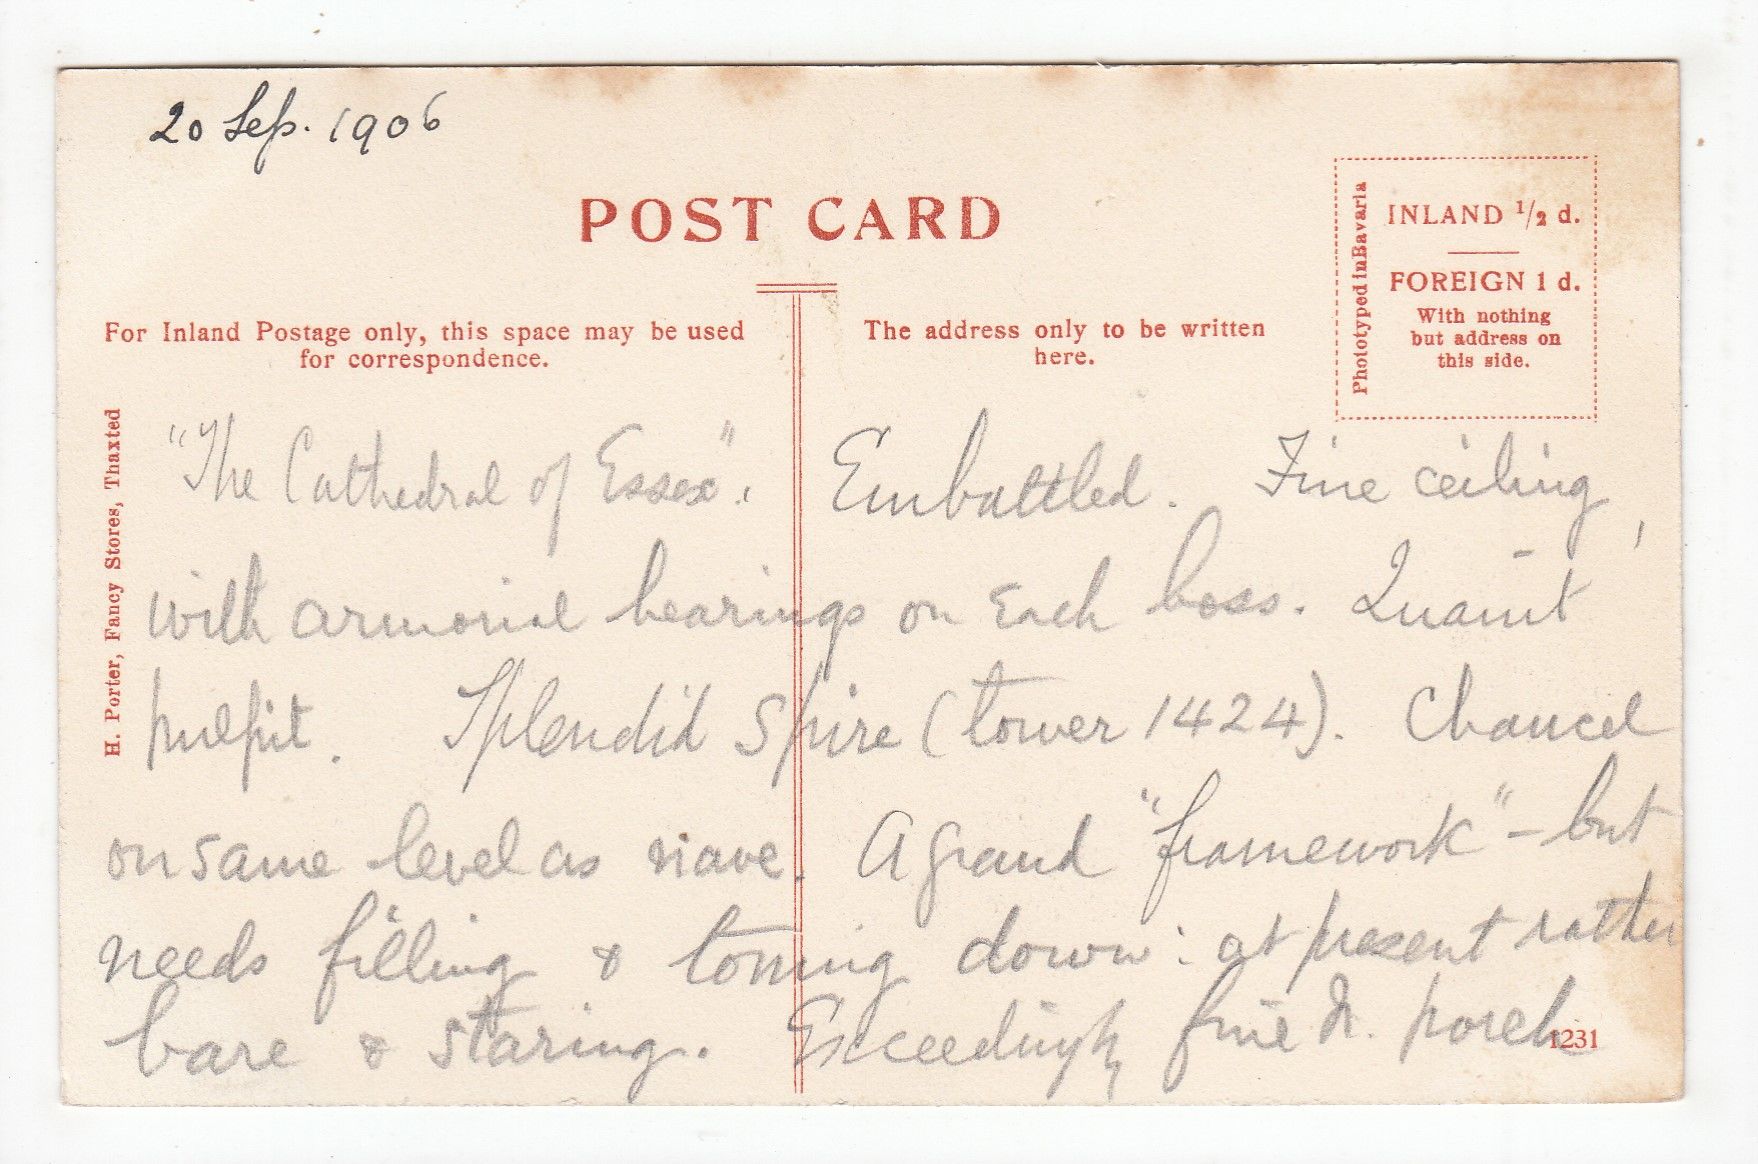 20 Sep. 1906
POST CARD
Phototyped in Bavaria
INLAND 1/2 d.
FOREIGN 1 d.
With nothing
but address on
this side.
For Inland Postage only, this space may be used
for correspondence.
The address only to be written
here.
H. Porter, Fancy Stores, Thaxted
"The Cathedral of Essex". Embattled. Fine ceiling,
with armorial bearings on each boss. Quaint
pulpit. Splendid Spire (tower 1424). Chancel
on same level as nave. A grand "framework" - but
needs filling & toning down: at present rather
bare & staring. Exceedingly fine N. porch
1231